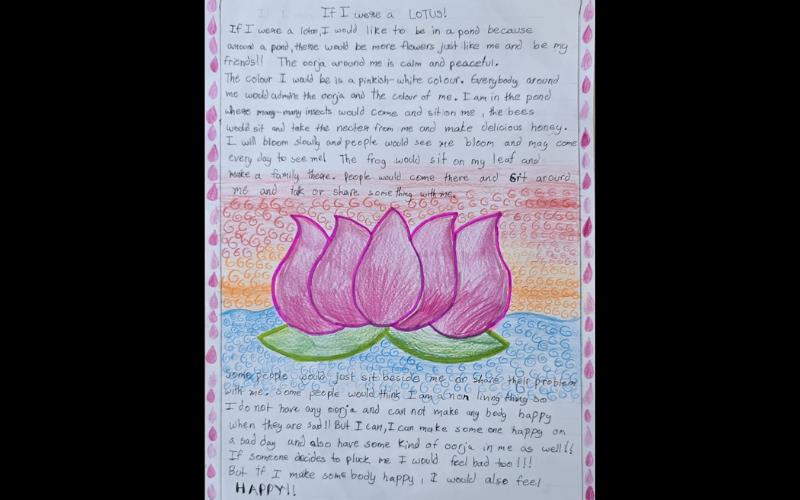 If I were a LOTUS!
If I were a lotus, I would like to be in a pond because
around a pond, there would be more flowers just like me and be my
friends!! The oorja around me is calm and peaceful.
The colour I would be is a pinkish-white colour. Everybody around
me would admire the oorja and the colour of me. I am in the pond
where many-many insects would come and sit on me, the bees
would sit and take the necter from me and make delicious honey.
I will bloom slowly and people would see me bloom and may come
every day to see me! The frog would sit on my leaf and
make a family there. People would come there and sit around
me and talk or share something with me.
Some people would just sit beside me or share their problem
with me. Some people would think I am a non living thing so
I do not have any oorja and can not make any body happy
when they are sad!! But I can, I can make some one happy on
a sad day and also have some kind of oorja in me as well!!
If someone decides to pluck me I would feel bad too!!!
But if I make some body happy, I would also feel
HAPPY!!